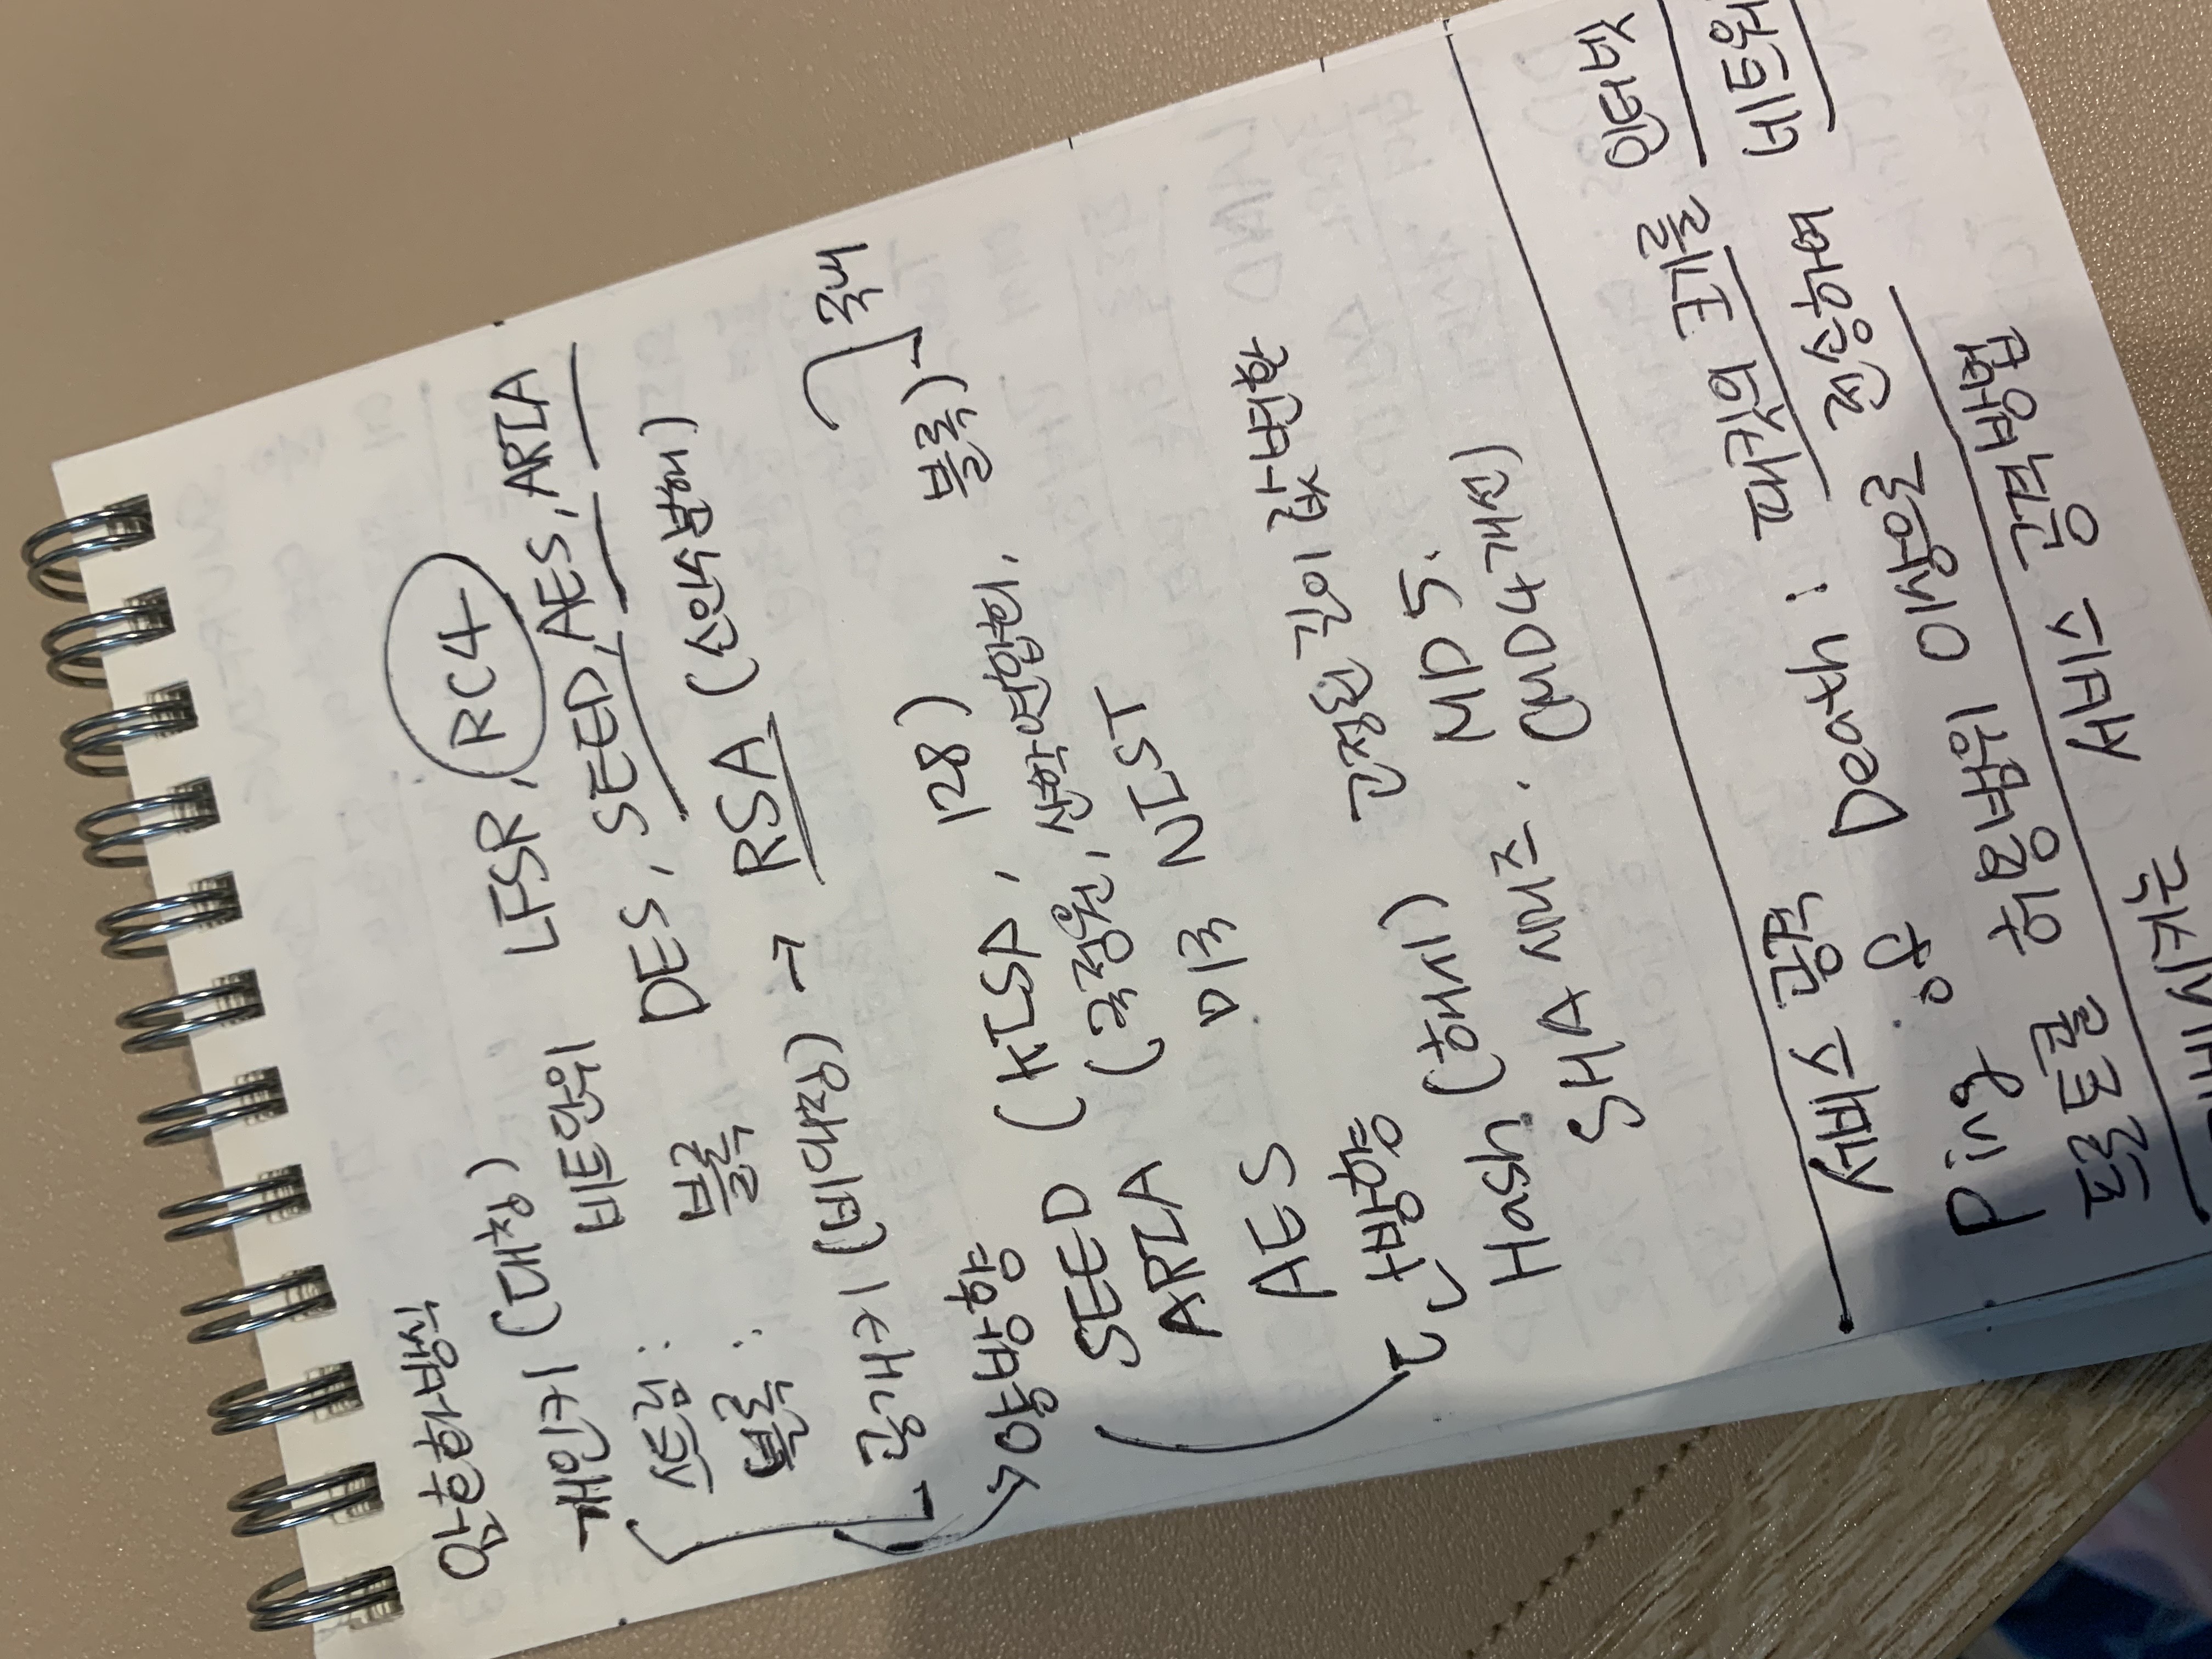 암호화방식
개인키 (대칭)
스트림 : 비트단위 LFSR, RC4
블록 : 블록 DES, SEED, AES, ARIA
공개키 (비대칭) → RSA (소인수분해)
양방향
SEED (KISA, 128) 국내
ARIA (국정원, 산학연협회, 블록)
AES 미국 NIST
단방향 고정된 길이 값 변환
Hash (해시) MD5.
SHA 시리즈. (MD4 개선)
서비스 공격
Ping of Death : 패킷의 크기를 인터넷
프로토콜 허용범위 이상을 전송하며 네트워
서비스 공격방법
마비시키는